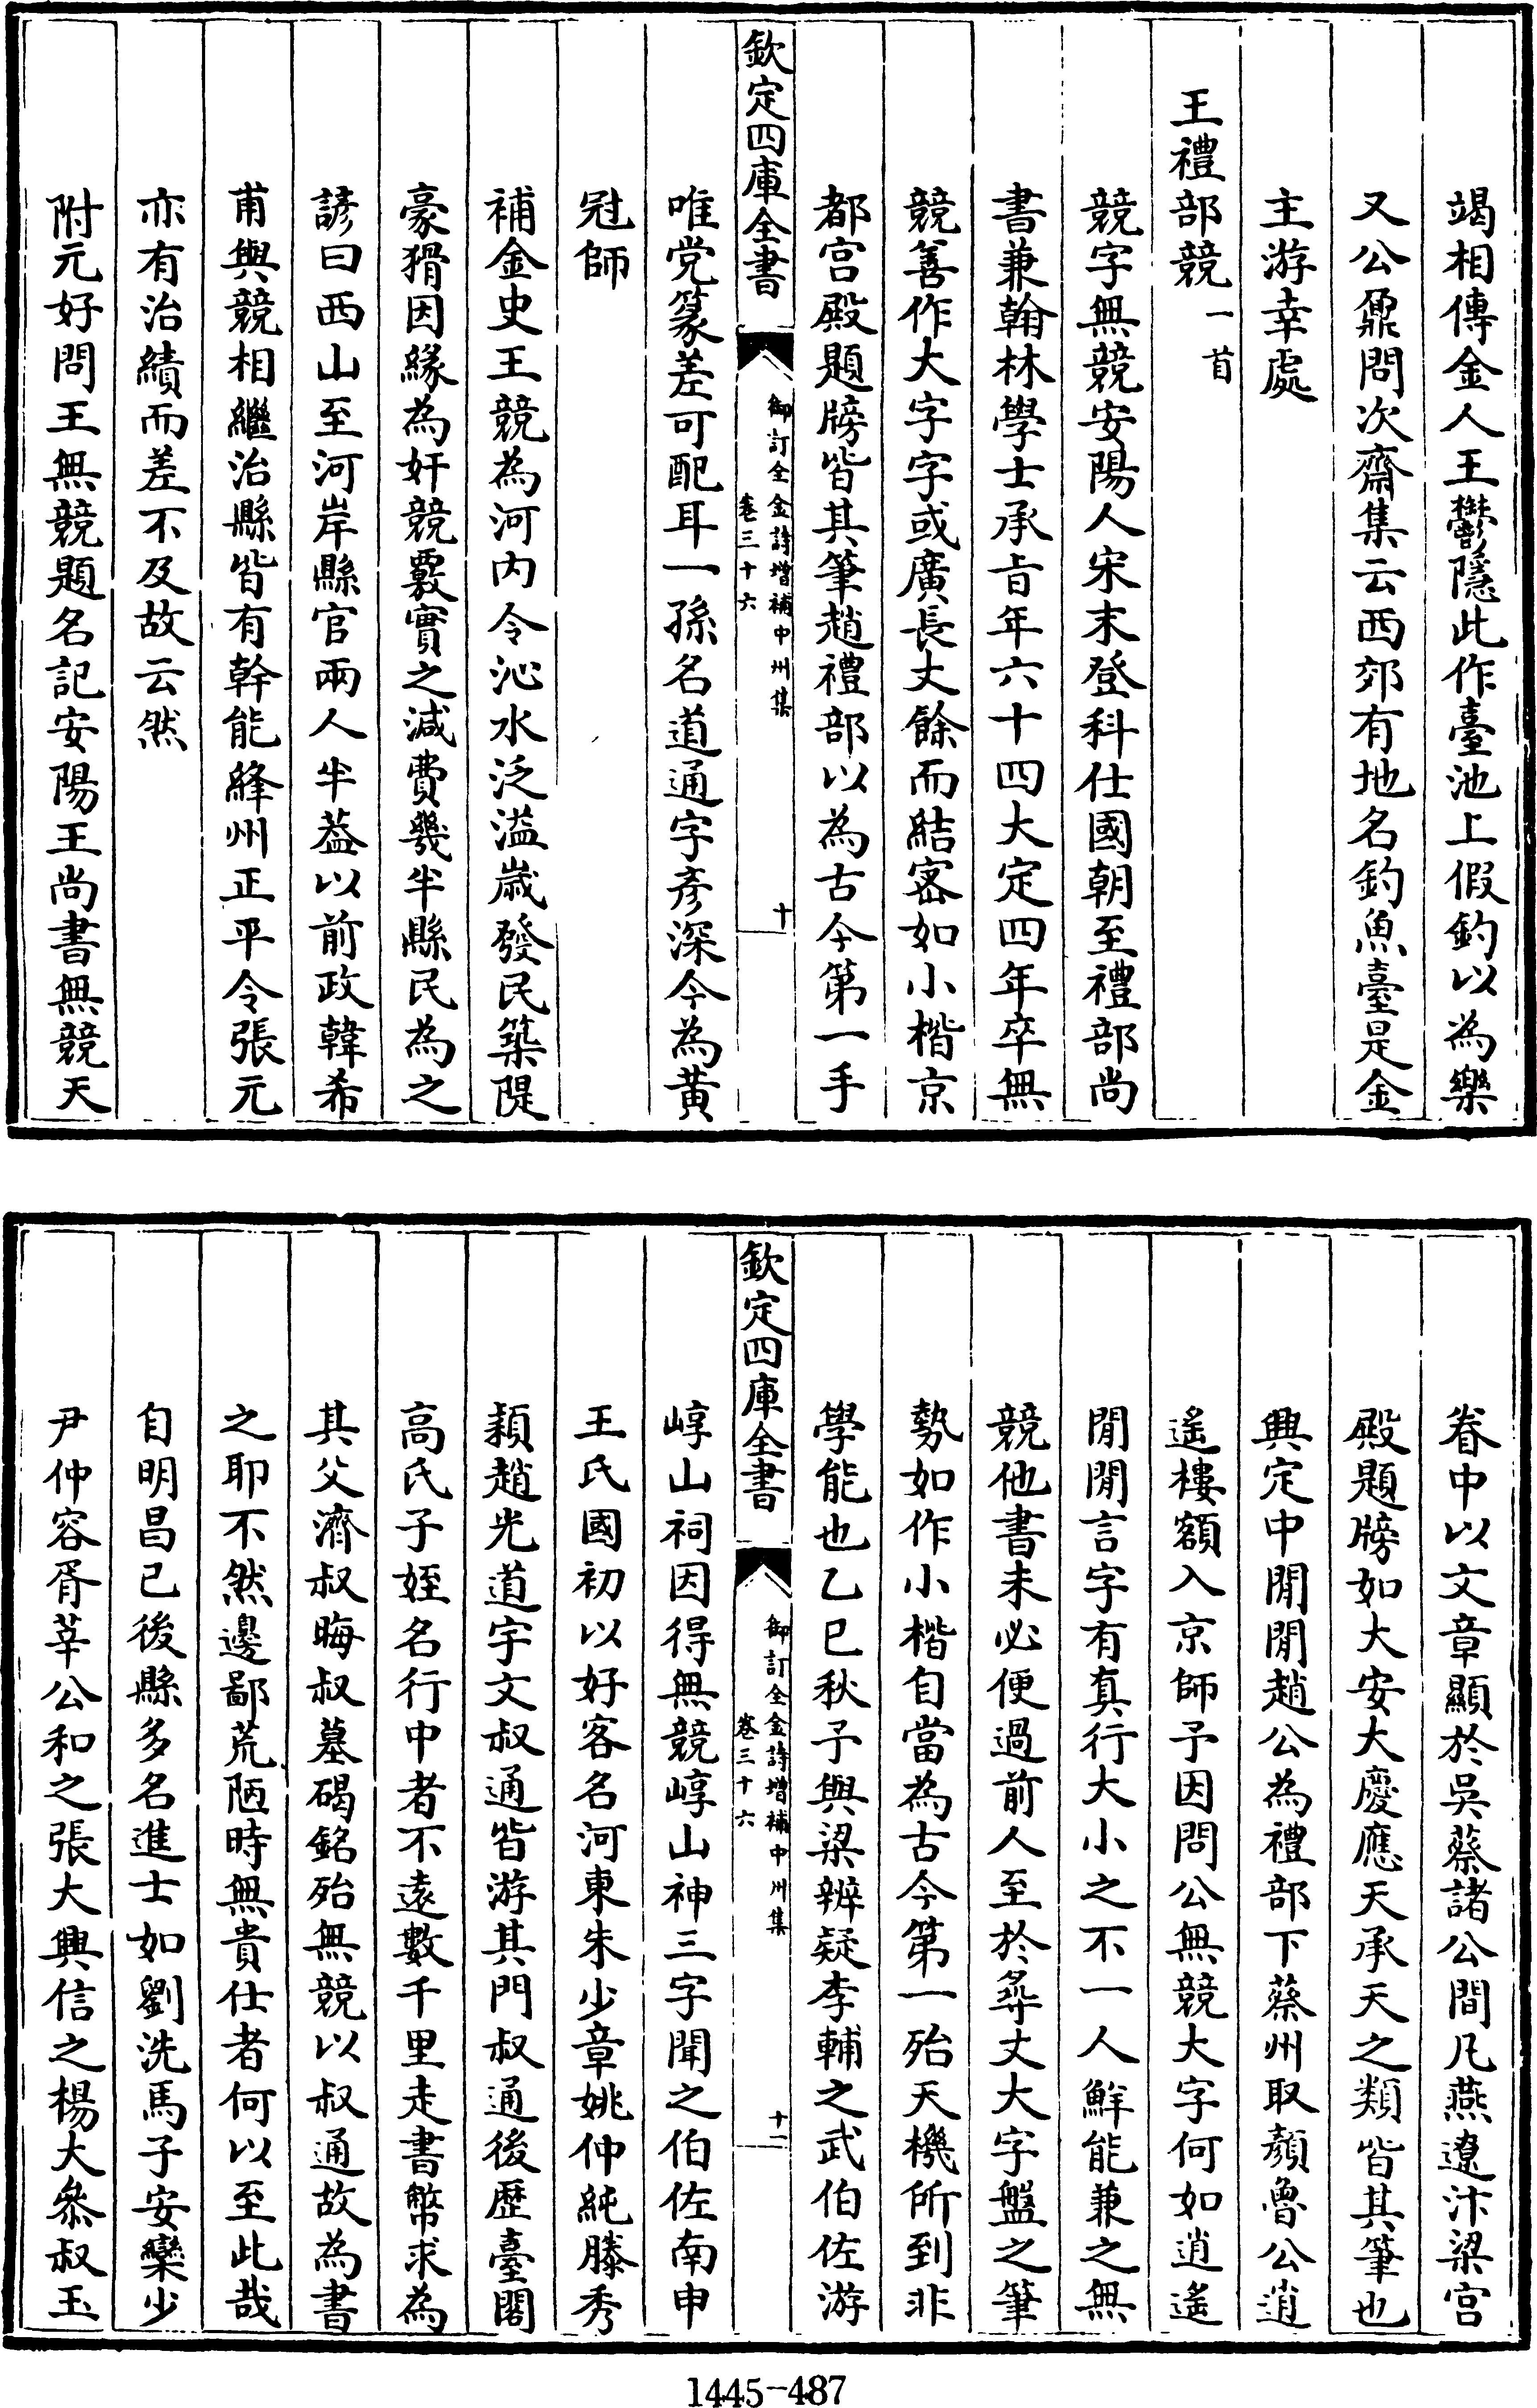 竭相傳金人王鬱隱此作臺池上假釣以為樂
又公鼐問次齋集云西郊有地名釣魚臺是金
主游幸處
王禮部競一首
競字無競安陽人宋末登科仕國朝至禮部尚
書兼翰林學士承旨年六十四大定四年卒無
競善作大字字或廣長丈餘而結密如小楷京
都宫殿題牓皆其筆趙禮部以為古今第一手
欽定四庫全書
御訂全金詩增補中州集
卷三十六
十
唯党篆差可配耳一孫名道通字彥深今為黄
冠師
補金史王競為河内令沁水泛溢歲發民築隄
豪猾因緣為奸競覈實之減費幾半縣民為之
諺曰西山至河岸縣官兩人半葢以前政韓希
甫與競相繼治縣皆有幹能絳州正平令張元
亦有治績而差不及故云然
附元好問王無競題名記安陽王尚書無競天
眷中以文章顯於吳蔡諸公間凡燕遼汴梁宫
殿題牓如大安大慶應天承天之類皆其筆也
興定中閒閒趙公為禮部下蔡州取顏魯公逍
遙樓額入京師予因問公無競大字何如逍遙
閒閒言字有真行大小之不一人鮮能兼之無
競他書未必便過前人至於尋丈大字盤之筆
勢如作小楷自當為古今第一殆天機所到非
學能也乙巳秋予與梁辨疑李輔之武伯佐游
欽定四庫全書
御訂全金詩增補中州集
卷三十六
十一
崞山祠因得無競崞山神三字聞之伯佐南申
王氏國初以好客名河東朱少章姚仲純滕秀
穎趙光道宇文叔通皆游其門叔通後歷臺閣
高氏子姪名行中者不遠數千里走書幣求為
其父濟叔晦叔墓碣銘殆無競以叔通故為書
之耶不然邊鄙荒陋時無貴仕者何以至此哉
自明昌已後縣多名進士如劉洗馬子安欒少
尹仲容胥莘公和之張大興信之楊大叅叔玉
1445-487